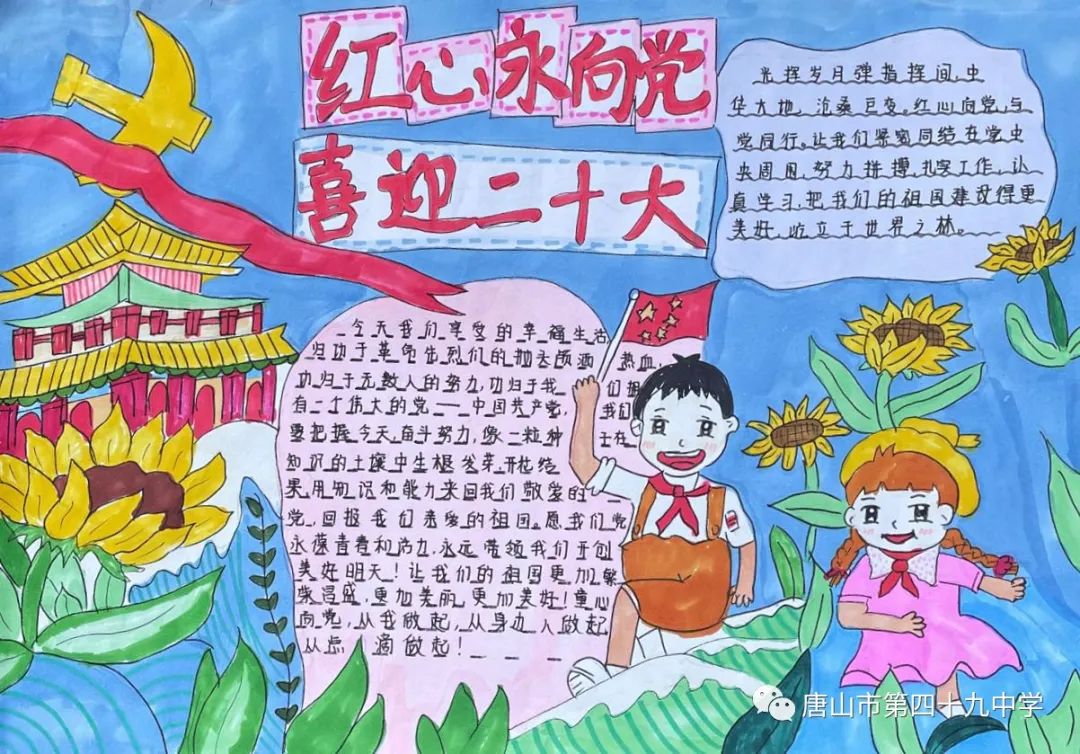 红心永向党
喜迎二十大
光挥岁月弹指挥间,中
华大地,沧桑巨变。红心向党,与
党同行。让我们紧密团结在党中
央周围,努力拼搏,扎实工作,认
真学习,把我们的祖国建设得更
美好,屹立于世界之林。
今天我们享受的幸福生活
归功于革命先烈们的抛头颅洒 热血
功归于无数人的努力,功归于我 们
有一个伟大的党——中国共产党, 我们
要把握今天,奋斗努力,像一粒种
知识的土壤中生根发芽,开花结
果,用知识和能力来回我们敬爱的
党,回报我们亲爱的祖国。愿我们党
永葆青春和活力,永远带领我们开创
美好明天!让我们的祖国更加繁
荣昌盛,更加美丽,更加美好!童心
向党,从我做起,从身边人做起
从点滴做起!
唐山市第四十九中学